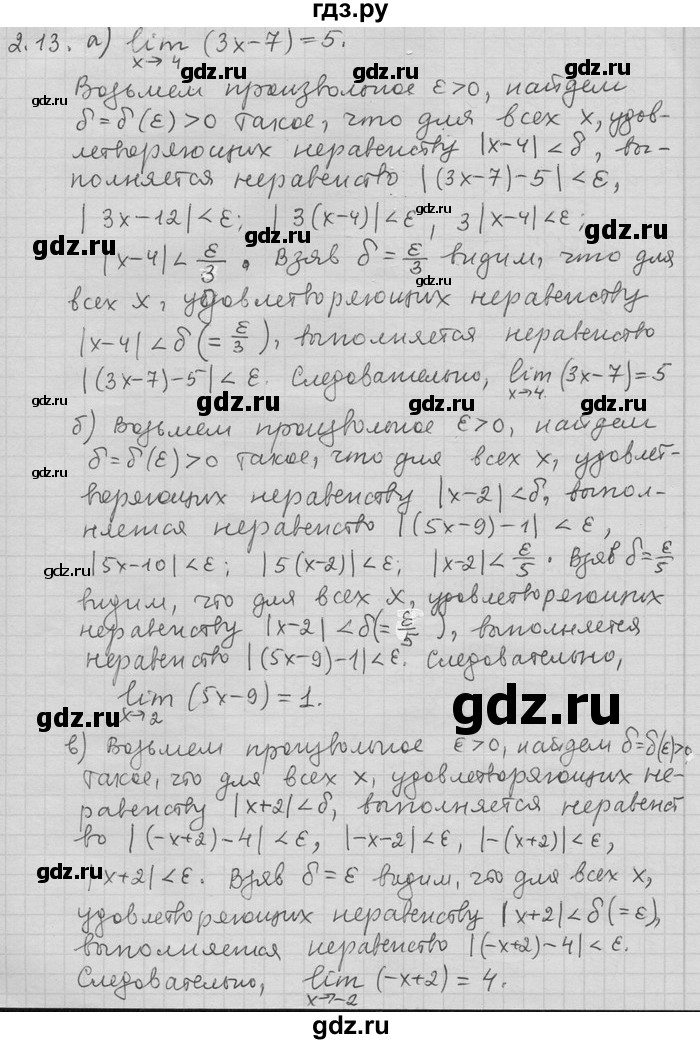 гдз.ру
2.13. а) lim (3x-7)=5.
x→4
gdz.ru gdz.ru
Возьмем произвольное ε>0, найдем
gdz.ru
δ=δ(ε)>0 такое, что для всех x, удов-
летворяющих неравенству |x-4|<δ, вы-
gdz.ru gdz.ru gdz.ru
полняется неравенство |(3x-7)-5|<ε,
|3x-12|<ε; |3(x-4)|<ε, 3|x-4|<ε;
gdz.ru gdz.ru gdz.ru
|x-4|<ε/3. Взяв δ=ε/3 видим, что для
всех x, удовлетворяющих неравенству
gdz.ru gdz.ru
|x-4|<δ(=ε/3), выполняется неравенство
|(3x-7)-5|<ε. Следовательно, lim (3x-7)=5
x→4
gdz.ru gdz.ru gdz.ru
б) Возьмем произвольное ε>0, найдем
δ=δ(ε)>0 такое, что для всех x, удовлет-
gdz.ru gdz.ru
воряющих неравенству |x-2|<δ, выпол-
няется неравенство |(5x-9)-1|<ε,
gdz.ru gdz.ru gdz.ru
|5x-10|<ε; |5(x-2)|<ε; |x-2|<ε/5. Взяв δ=ε/5
видим, что для всех x, удовлетворяющих
gdz.ru gdz.ru
неравенству |x-2|<δ(=ε/5), выполняется
неравенство |(5x-9)-1|<ε. Следовательно,
lim (5x-9)=1.
x→2
gdz.ru gdz.ru
в) Возьмем произвольное ε>0, найдем δ=δ(ε)>0
такое, что для всех x, удовлетворяющих не-
gdz.ru gdz.ru
равенству |x+2|<δ, выполняется неравенст
во |(-x+2)-4|<ε, |-x-2|<ε, |-(x+2)|<ε,
gdz.ru gdz.ru gdz.ru
|x+2|<ε. Взяв δ=ε видим, что для всех x,
удовлетворяющих неравенству |x+2|<δ(=ε),
gdz.ru gdz.ru
выполняется неравенство |(-x+2)-4|<ε.
Следовательно, lim (-x+2)=4.
x→-2
gdz.ru gdz.ru gdz.ru
gdz.ru